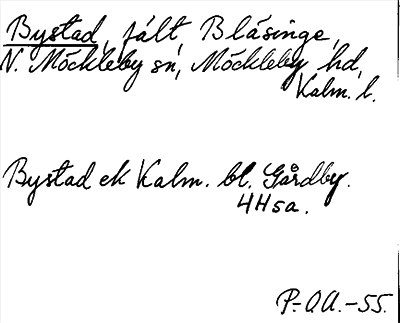 Bystad, fält Bläsinge,
N. Möckleby sn, Möckleby hd,
Kalm. l.
Bystad ek Kalm. bl. Gårdby.
4H5a.
P.-O.A.-55.